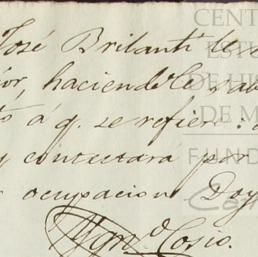 José Brilanti le
or, haciendole sab
to á q. se refier
y contestara por
ocupacion Doy
Ygn.º Cosio.
CENT
EST
DE HIS
DE M
FUND